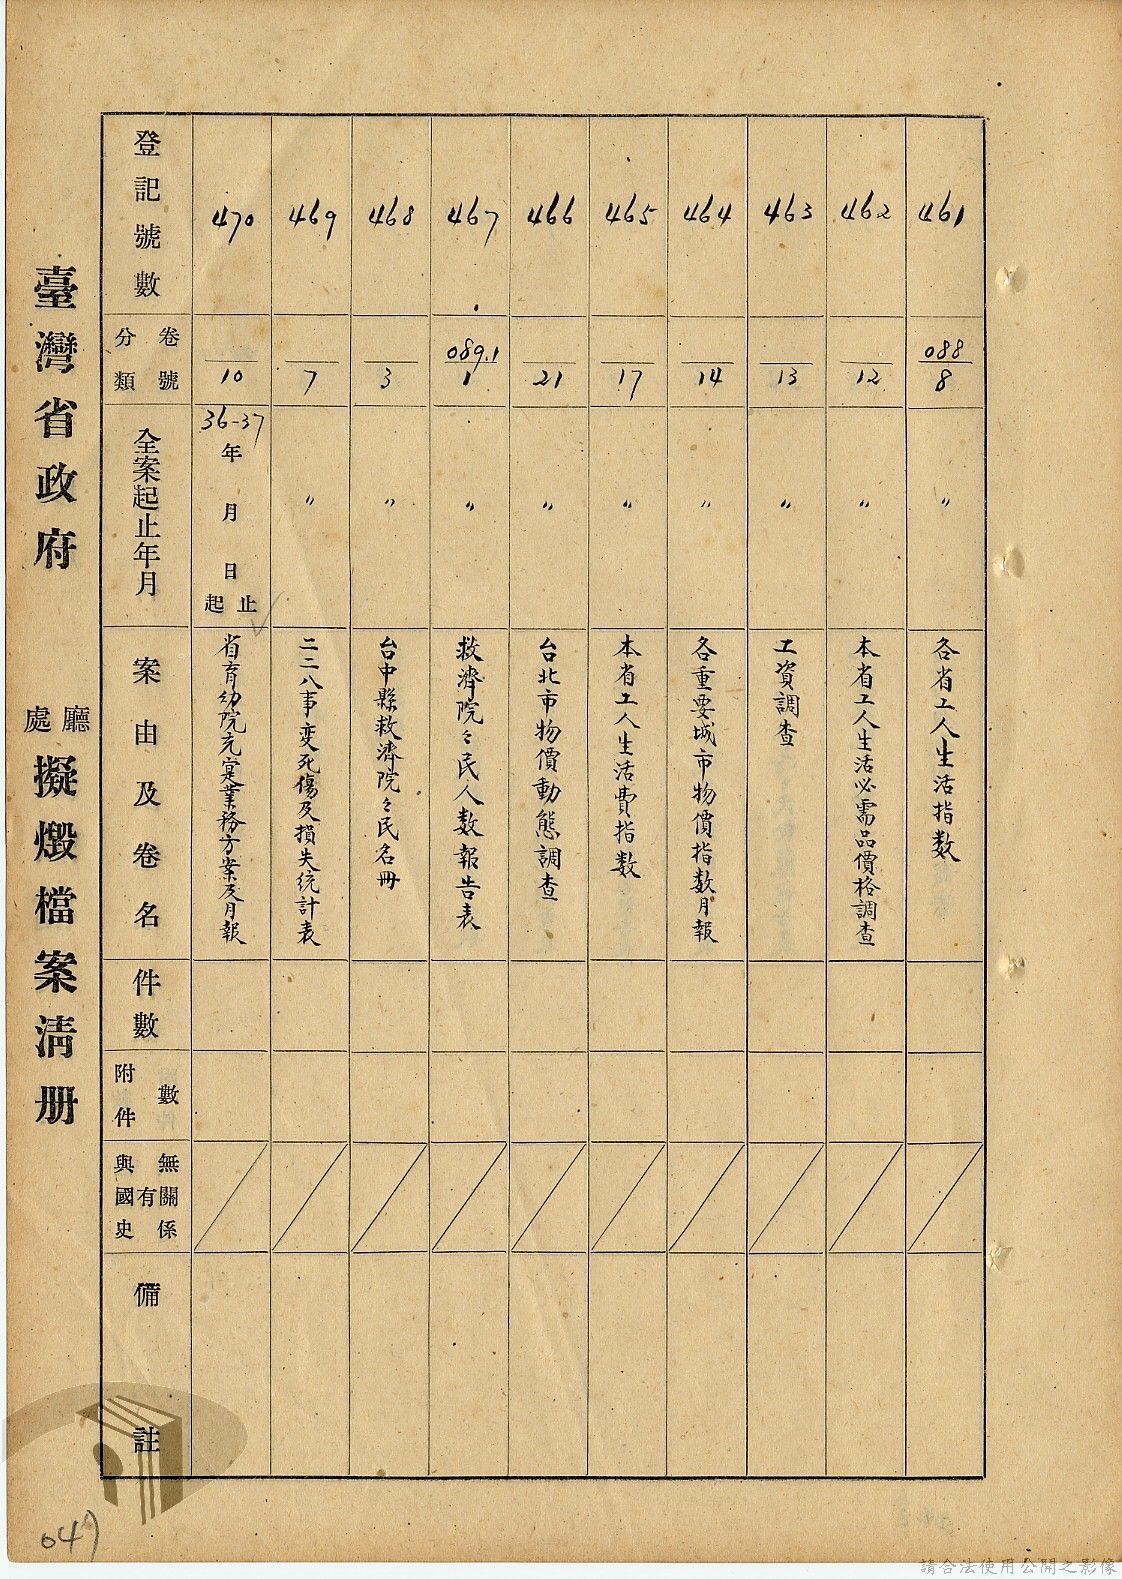 臺灣省政府 廳處 擬燬檔案清册
登記號數
分類 卷號
全案起止年月
案由及卷名
件數
附件 數
與國史 有 無關係
備註
461
088
8
〃
各省工人生活指数
462
12
〃
本省工人生活必需品價格調查
463
13
〃
工資調查
464
14
〃
各重要城市物價指数月報
465
17
〃
本省工人生活費指数
466
21
〃
台北市物價動態調查
467
089.1
1
〃
救濟院々民人数報告表
468
3
〃
台中縣救濟院々民名冊
469
7
〃
二二八事变死傷及損失統計表
470
10
36-37
年 月 日
起 止
省育幼院充寔業務方案及月報
047
請合法使用公開之影像